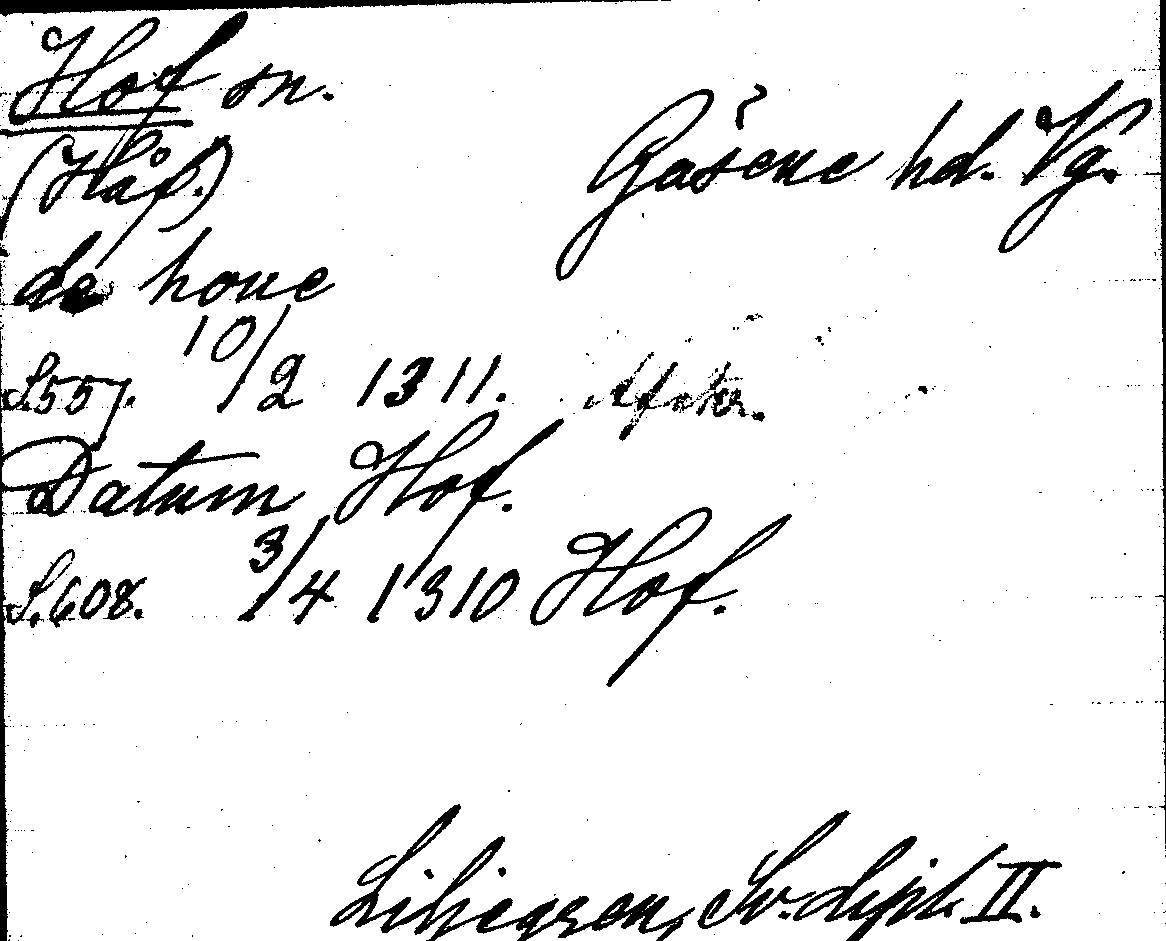 Hof sn.
Gäsene hd. Vg.
(Håf.)
de houe
S.557. 10/2 1311. Afskr.
Datum Hof.
S.608. 3/4 1310 Hof.
Liljegren, Sv. dipl. II.